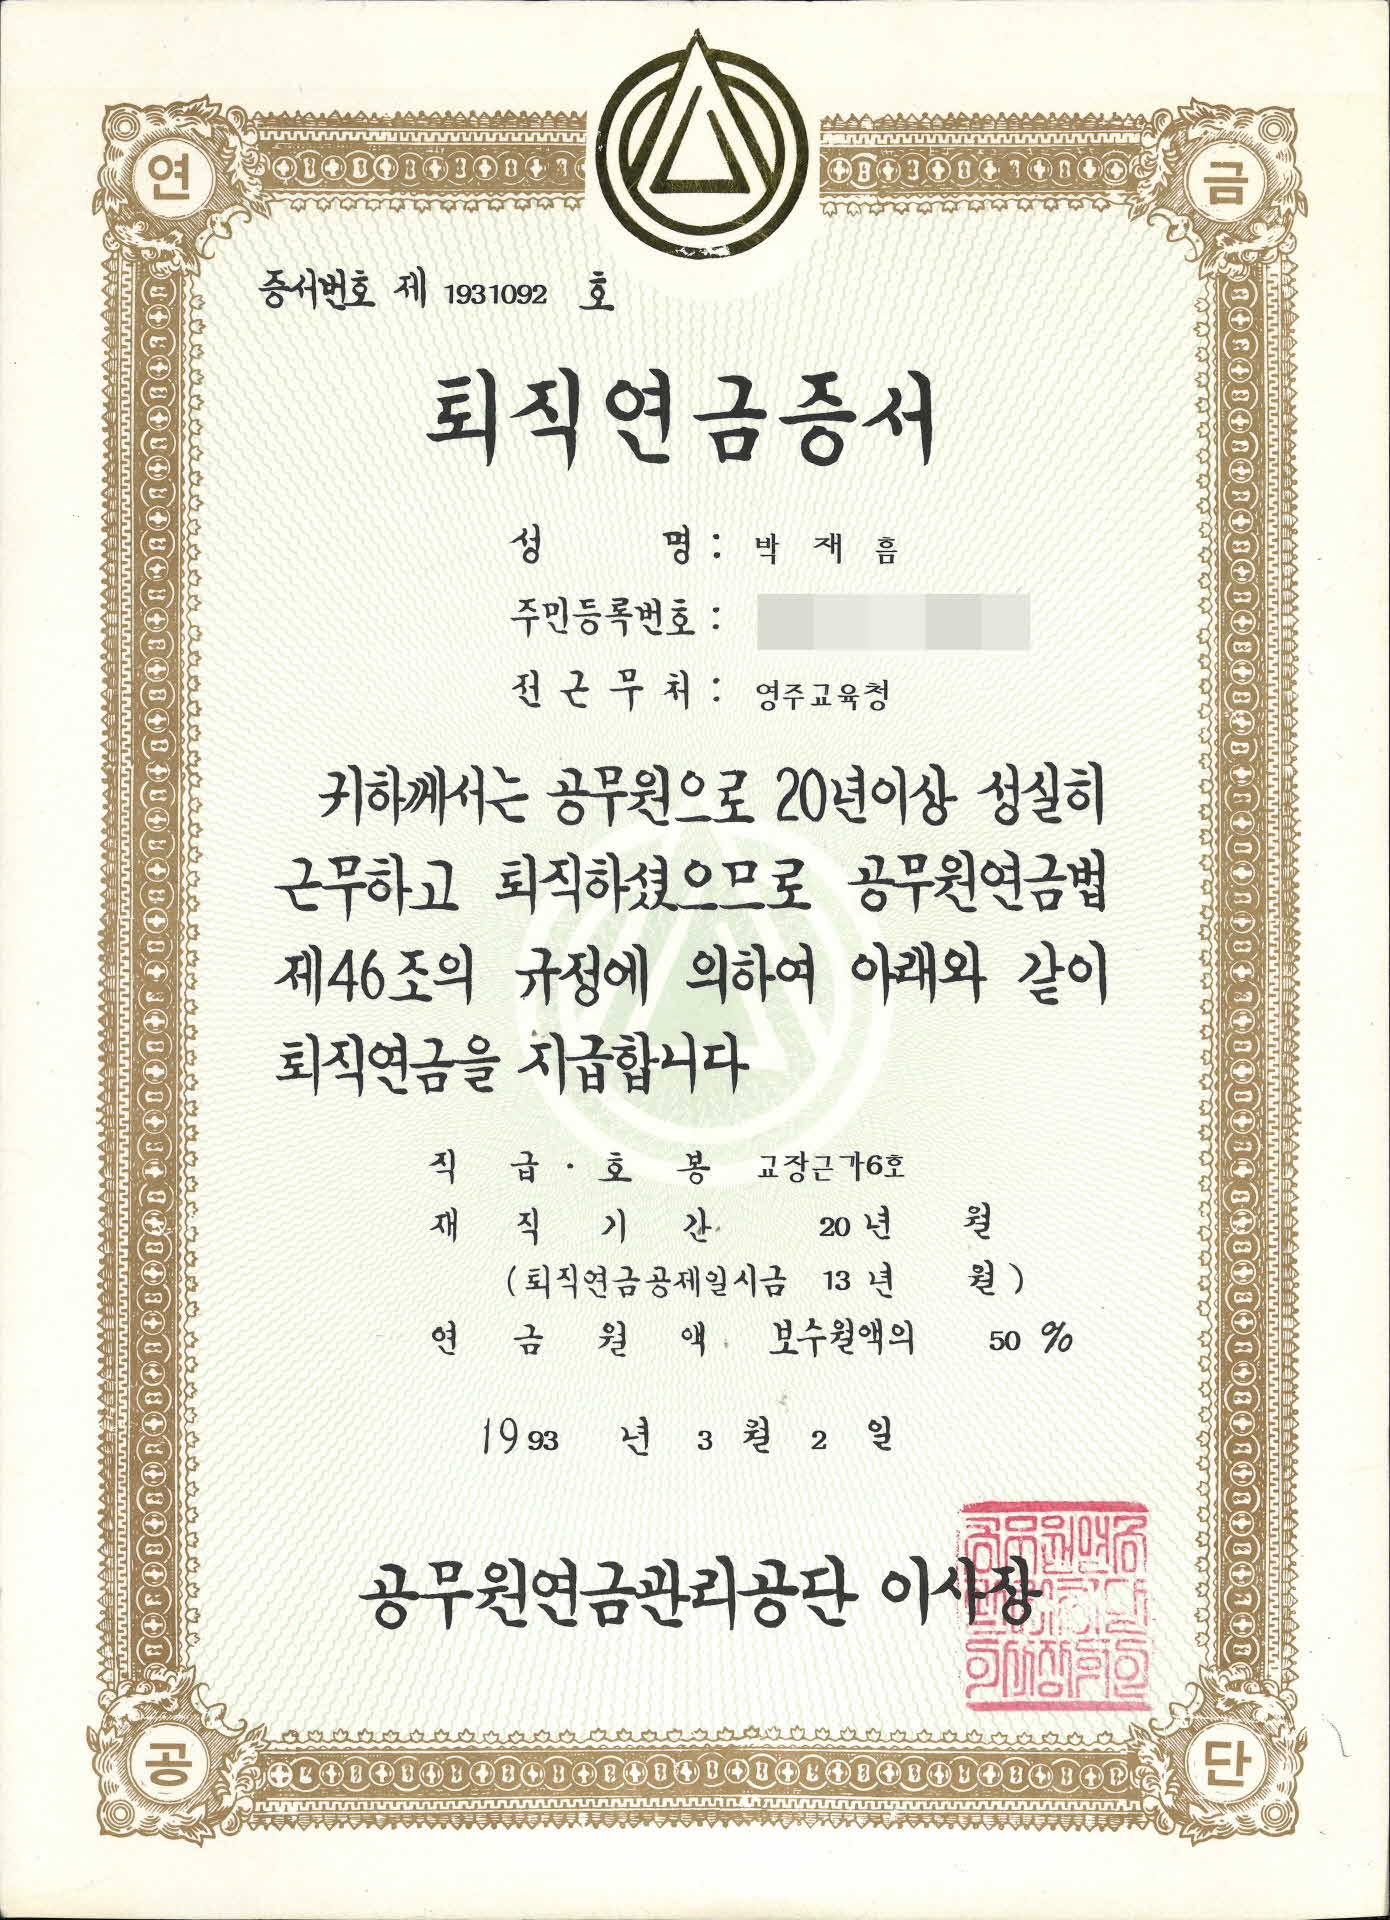 연
금
증서번호 제 1931092 호
퇴직연금증서
성 명 : 박 재 흠
주민등록번호 :
전근무처 : 영주교육청
귀하께서는 공무원으로 20년이상 성실히
근무하고 퇴직하셨으므로 공무원연금법
제46조의 규정에 의하여 아래와 같이
퇴직연금을 지급합니다
직 급 · 호 봉 교장근가6호
재 직 기 간 20 년 월
(퇴직연금공제일시금 13 년 월)
연 금 월 액 보수월액의 50 %
1993 년 3 월 2 일
공무원연금관리공단 이사장
공
단